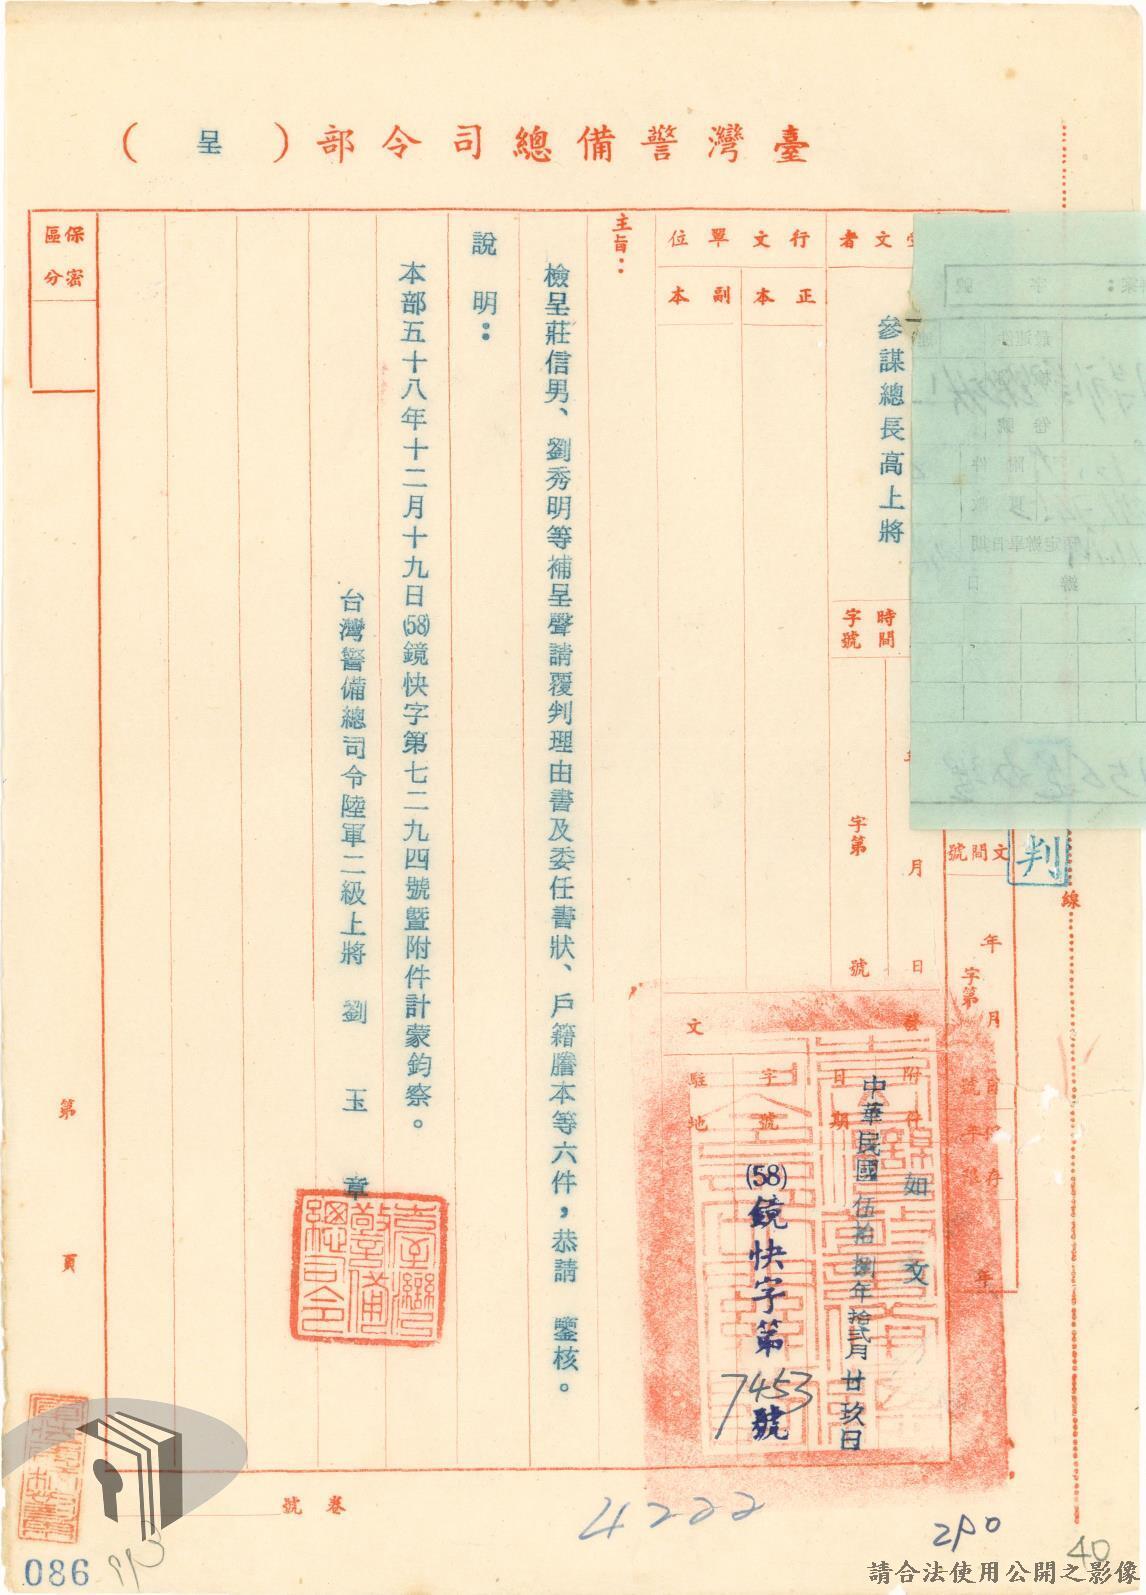 臺灣警備總司令部（呈）
受文者
參謀總長高上將
保密
區分
行文
單位
正本
副本
時間
字號
年
月
日
字第
號
文
間
號
年
月
字第
號
判
線
發
文
附件
如文
日期
中華民國伍拾捌年拾貳月廿玖日
字號
(58)鏡快字第7453號
駐地
主旨：
檢呈莊信男、劉秀明等補呈聲請覆判理由書及委任書狀、戶籍謄本等六件，恭請　鑒核。
說明：
本部五十八年十二月十九日(58)鏡快字第七二九四號暨附件計蒙鈞察。
台灣警備總司令陸軍二級上將　劉玉章
臺灣警備總司令
第
頁
卷號
4222
290
40
086
請合法使用公開之影像